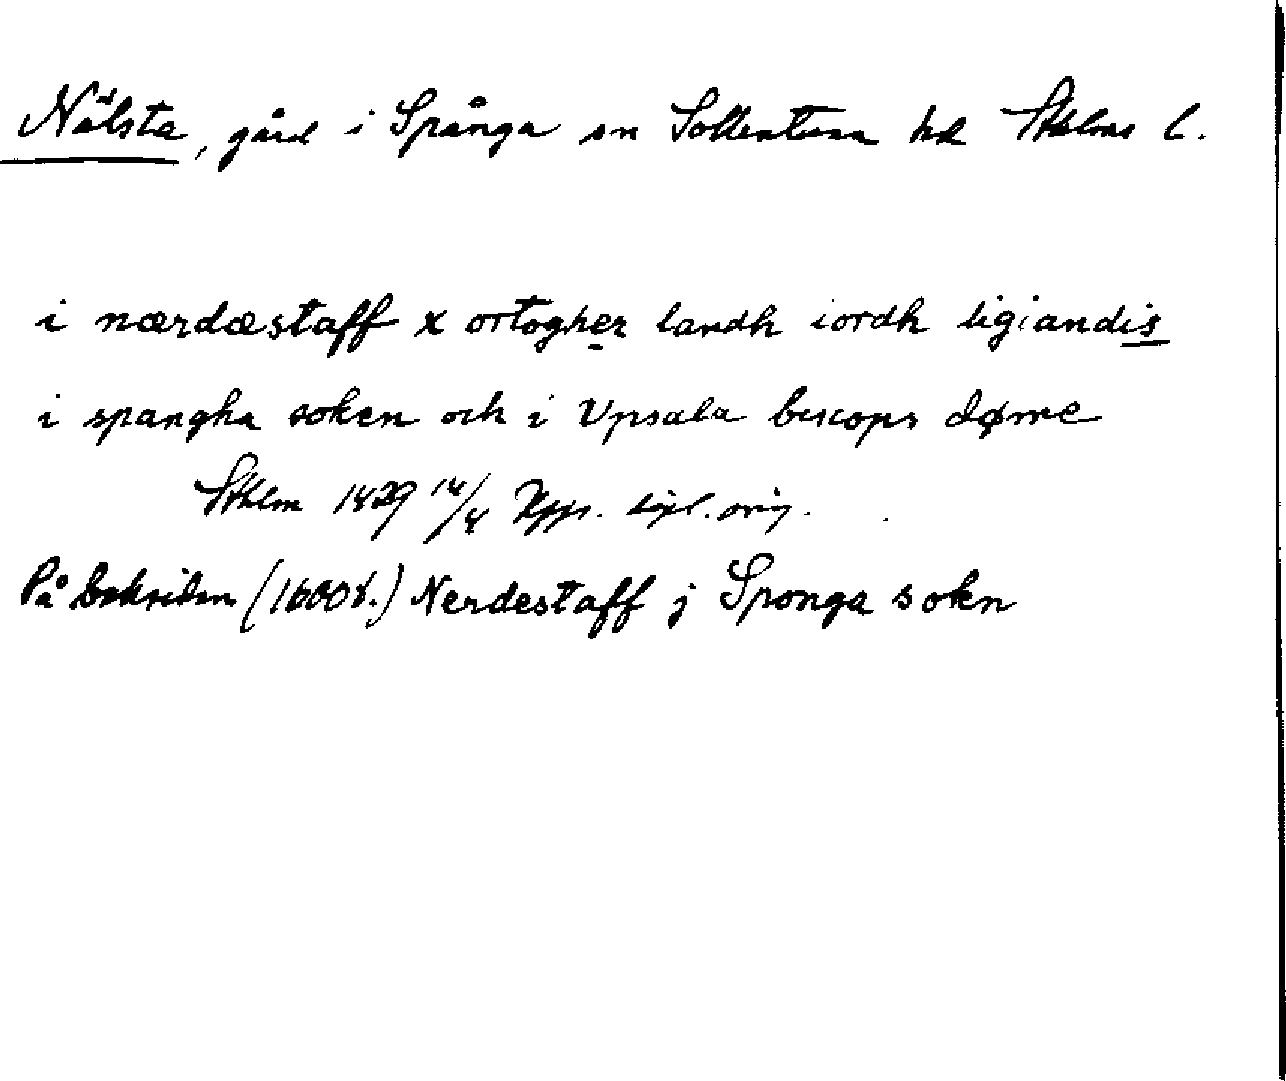 Nälsta, gård i Spånga sn Sollentuna hd Sthlms l.
i nærdæstaff x ortogher landh iordh ligiandis
i spangha soken och i Vpsala biscops døme
Sthlm 1429 14/4 Upps. dipl. orig.
På baksidan (1600 t.) Nerdestaff j Sponga sokn